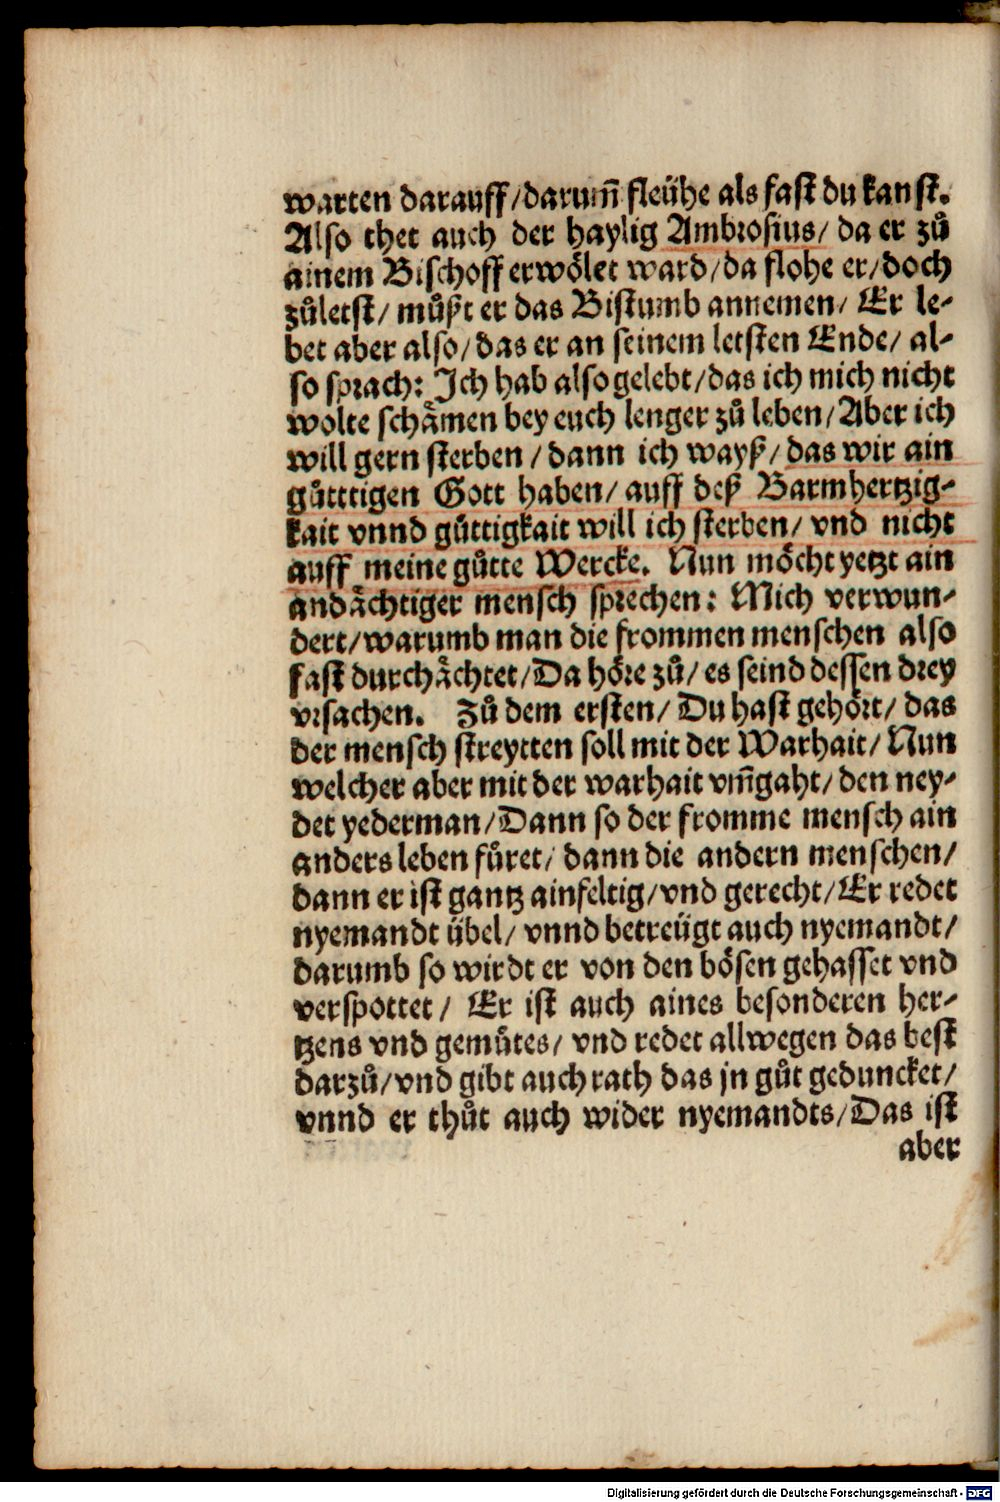 warten darauff/darum̃ fleühe als fast du kanst.
Also thet auch der haylig Ambrosius/ da er zů
ainem Bischoff erwölet ward/da flohe er/doch
zůletst/ můßt er das Bistumb annemen/ Er le-
bet aber also/das er an seinem letsten Ende/ al-
so sprach: Ich hab also gelebt/das ich mich nicht
wolte schämen bey euch lenger zů leben/Aber ich
will gern sterben/dann ich wayß/das wir ain
gůtttigen Gott haben/auff deß Barmhertzig-
kait vnnd gůttigkait will ich sterben/ vnd nicht
auff meine gůtte Wercke. Nun möcht yetzt ain
andächtiger mensch sprechen: Mich verwun-
dert/warumb man die frommen menschen also
fast durchächtet/Da höre zů/es seind dessen drey
vrsachen. Zů dem ersten/ Du hast gehört/ das
der mensch streytten soll mit der Warhait/Nun
welcher aber mit der warhait vm̃gaht/den ney-
det yederman/Dann so der fromme mensch ain
anders leben fůret/ dann die andern menschen/
dann er ist gantz ainfeltig/vnd gerecht/Er redet
nyemandt übel/ vnnd betreügt auch nyemandt/
darumb so wirdt er von den bösen gehasset vnd
verspottet/ Er ist auch aines besonderen her-
tzens vnd gemůtes/ vnd redet allwegen das best
darzů/vnd gibt auch rath das jn gůt geduncket/
vnnd er thůt auch wider nyemandts/Das ist
aber
Digitalisierung gefördert durch die Deutsche Forschungsgemeinschaft - DFG